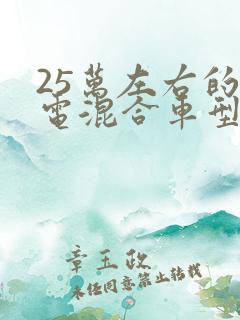 25萬左右的
電混合車型
章玉政
未經同意禁止轉載